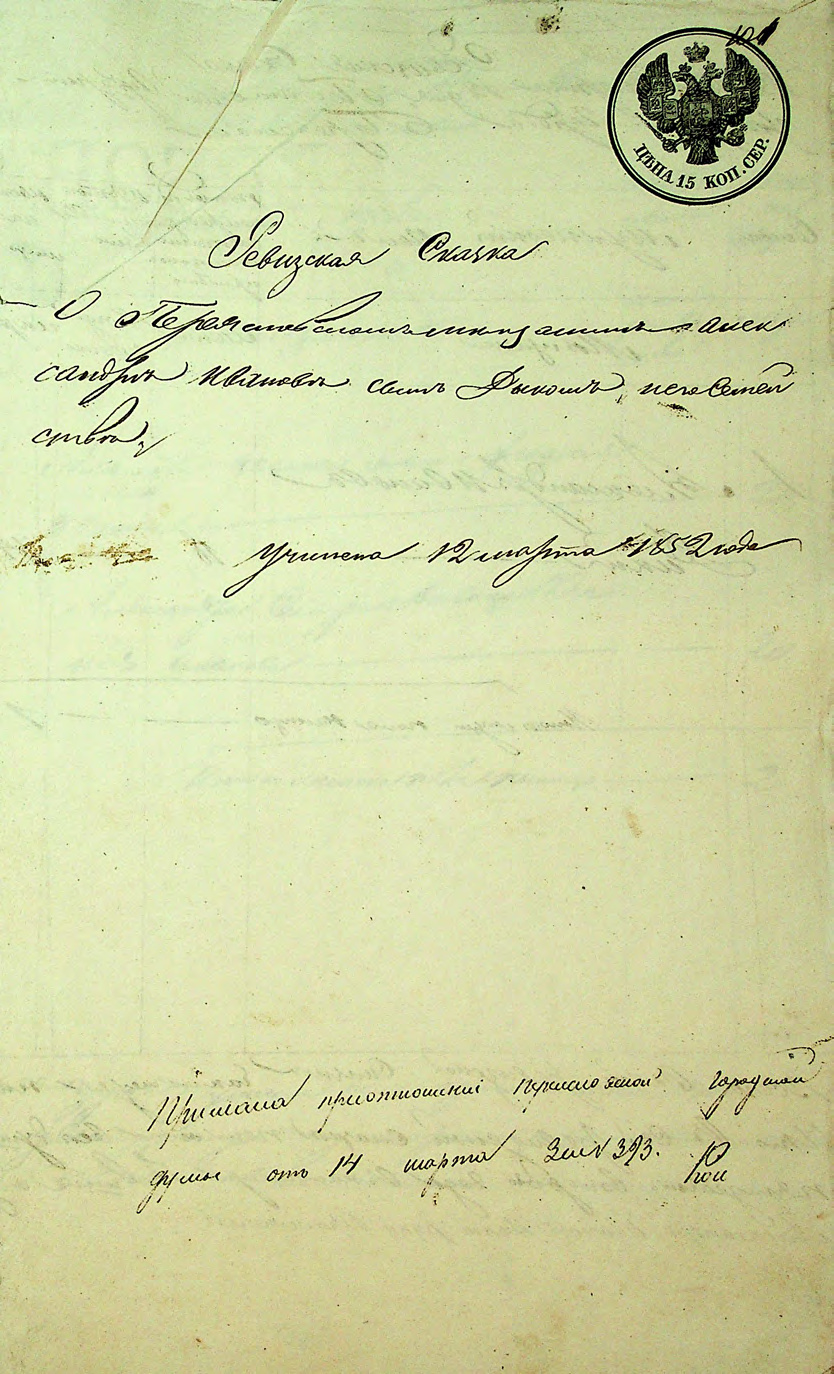 101
ЦѢНА 15 КОП. СЕР.
Ревизская Сказка
О Переяславскомъ мещанинѣ Алек
сандрѣ Ивановѣ сынѣ Дыкомъ, иегосемей
ства,
Учинена 12 марта 1852 года
Прислана приотношеніи городской
думы отъ 14 марта за № 393.